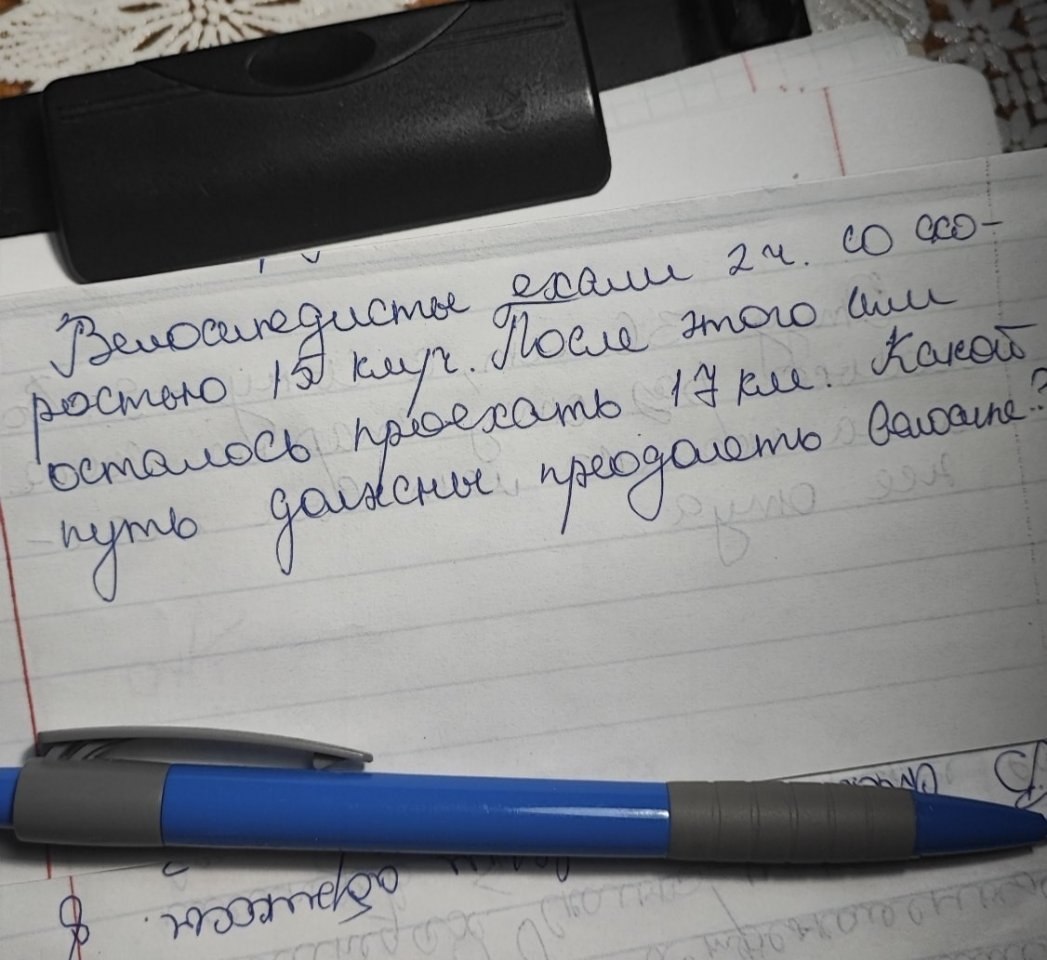 Велосипедисты ехали 2 ч. со ско-
ростью 15 км/ч. После этого им
осталось проехать 17 км. Какой
путь должны преодолеть велосипе..?